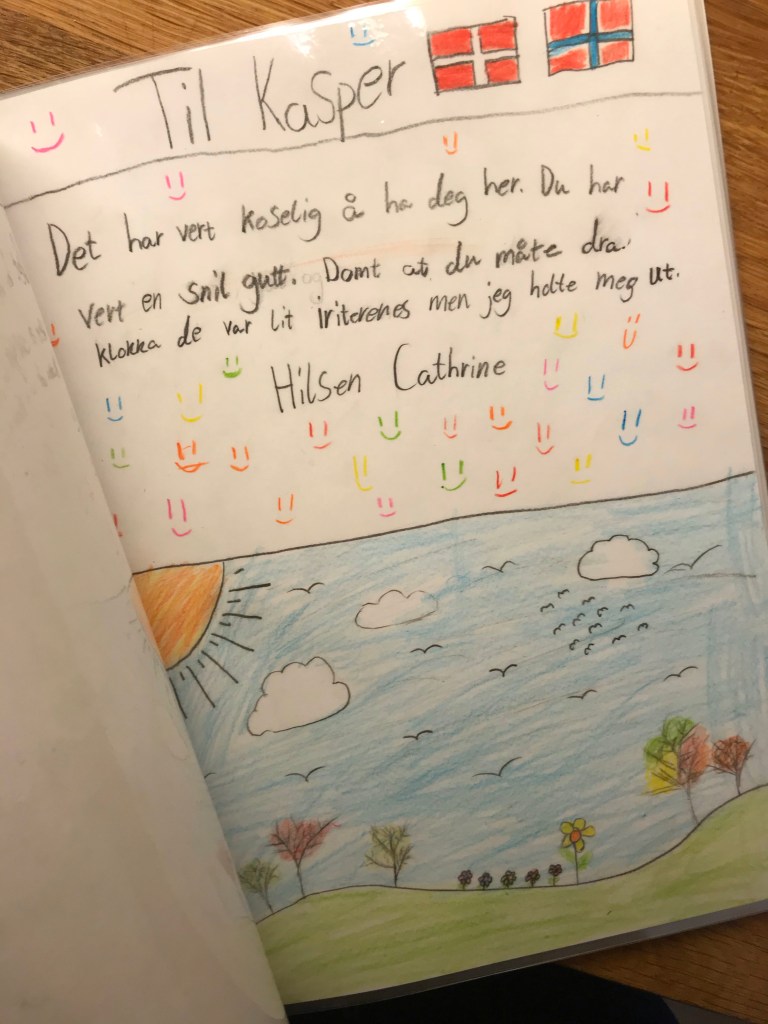 Til Kasper
Det har vert koselig å ha deg her. Du har
vert en snil gutt. Domt at du måte dra.
klokka de var lit iriterenes men jeg holte meg ut.
Hilsen Cathrine